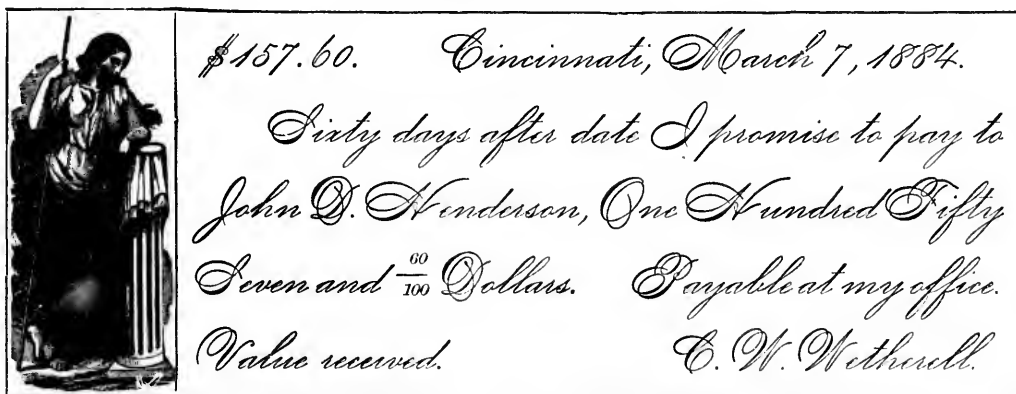 $157.60. Cincinnati, March 7, 1884.
Sixty days after date I promise to pay to
John D. Henderson, One Hundred Fifty
Seven and 60/100 Dollars. Payable at my office.
Value received. C. W. Wetherell.